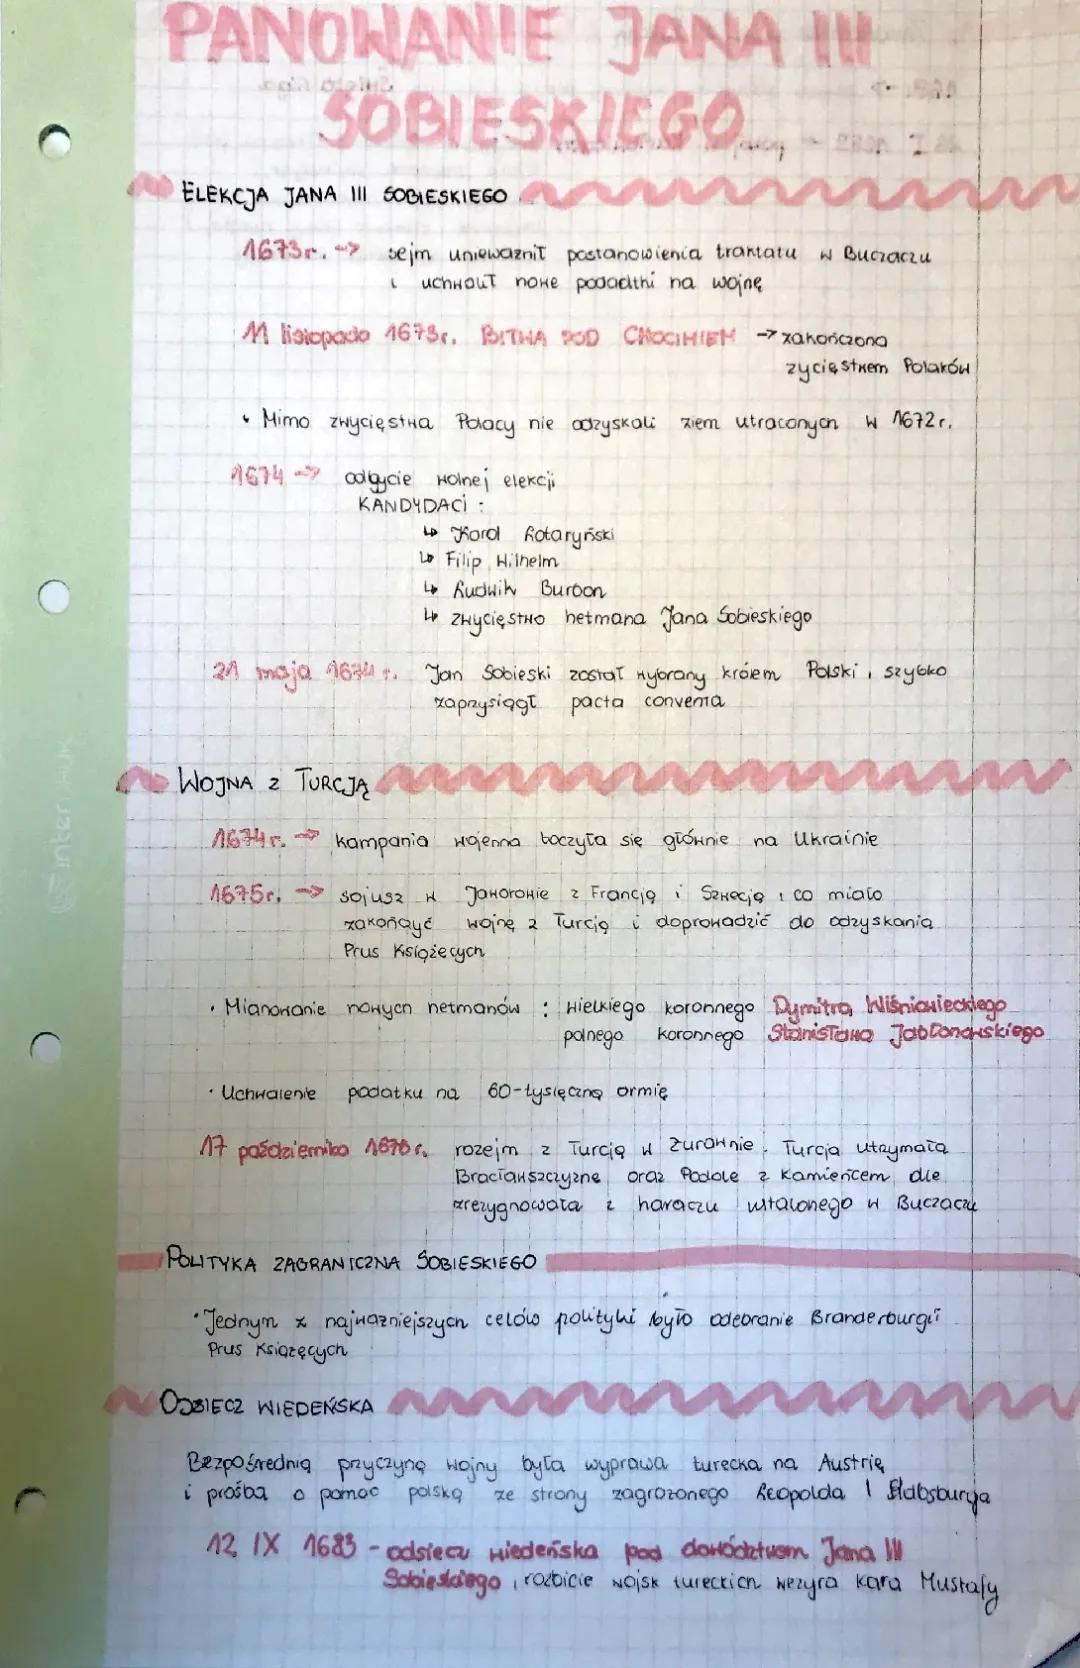 PANOWANIE JANA III
SOBIESKIEGO
ELEKCJA JANA III SOBIESKIEGO
1673r. -> sejm unieważnił postanowienia traktatu w Buczaczu
i uchwalił nowe podadtki na wojnę
11 listopada 1673r. BITWA POD CHOCIMIEM -> zakończona
zycięstwem Polaków
• Mimo zwycięstwa Polacy nie odzyskali ziem utraconych w 1672r.
1674 -> odbycie wolnej elekcji
KANDYDACI :
↳ Karol Lotaryński
↳ Filip Wilhelm
↳ Ludwik Burbon
↳ zwycięstwo hetmana Jana Sobieskiego
21 maja 1674 r. Jan Sobieski został wybrany królem Polski, szybko
zaprzysiągł pacta conventa
WOJNA Z TURCJĄ
1674r. -> kampania wojenna toczyła się głównie na Ukrainie
1675r. -> sojusz w Jaworowie z Francją i Szwecją, co miało
zakończyć wojnę z Turcją i doprowadzić do odzyskania
Prus Książęcych
• Mianowanie nowych hetmanów : wielkiego koronnego Dymitra Wiśniowieckiego
polnego koronnego Stanisława Jabłonowskiego
• Uchwalenie podatku na 60-tysięczną armię
17 października 1676r. rozejm z Turcją w Żurawnie. Turcja utrzymała
Bracławszczyznę oraz Podole z Kamieńcem ale
zrezygnowała z haraczu ustalonego w Buczaczu
POLITYKA ZAGRANICZNA SOBIESKIEGO
• Jednym z najważniejszych celów polityki było odebranie Branderburgii
Prus Książęcych
ODSIECZ WIEDEŃSKA
Bezpośrednią przyczyną wojny była wyprawa turecka na Austrię
i prośba o pomoc polską ze strony zagrożonego Leopolda I Habsburga
12 IX 1683 - odsiecz wiedeńska pod dowództwem Jana III
Sobieskiego, rozbicie wojsk tureckich wezyra Kara Mustafy
interdruk